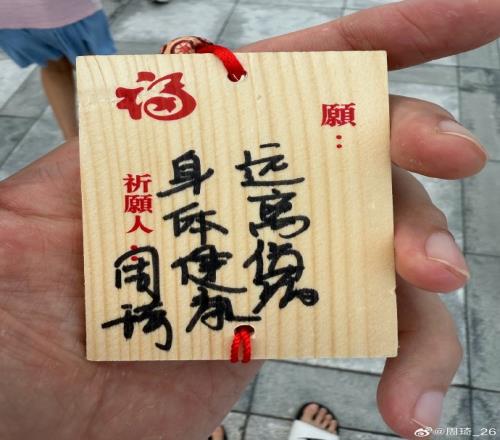 福
願：
远离
身体健康
祈願人：
周琦
@周琦_26